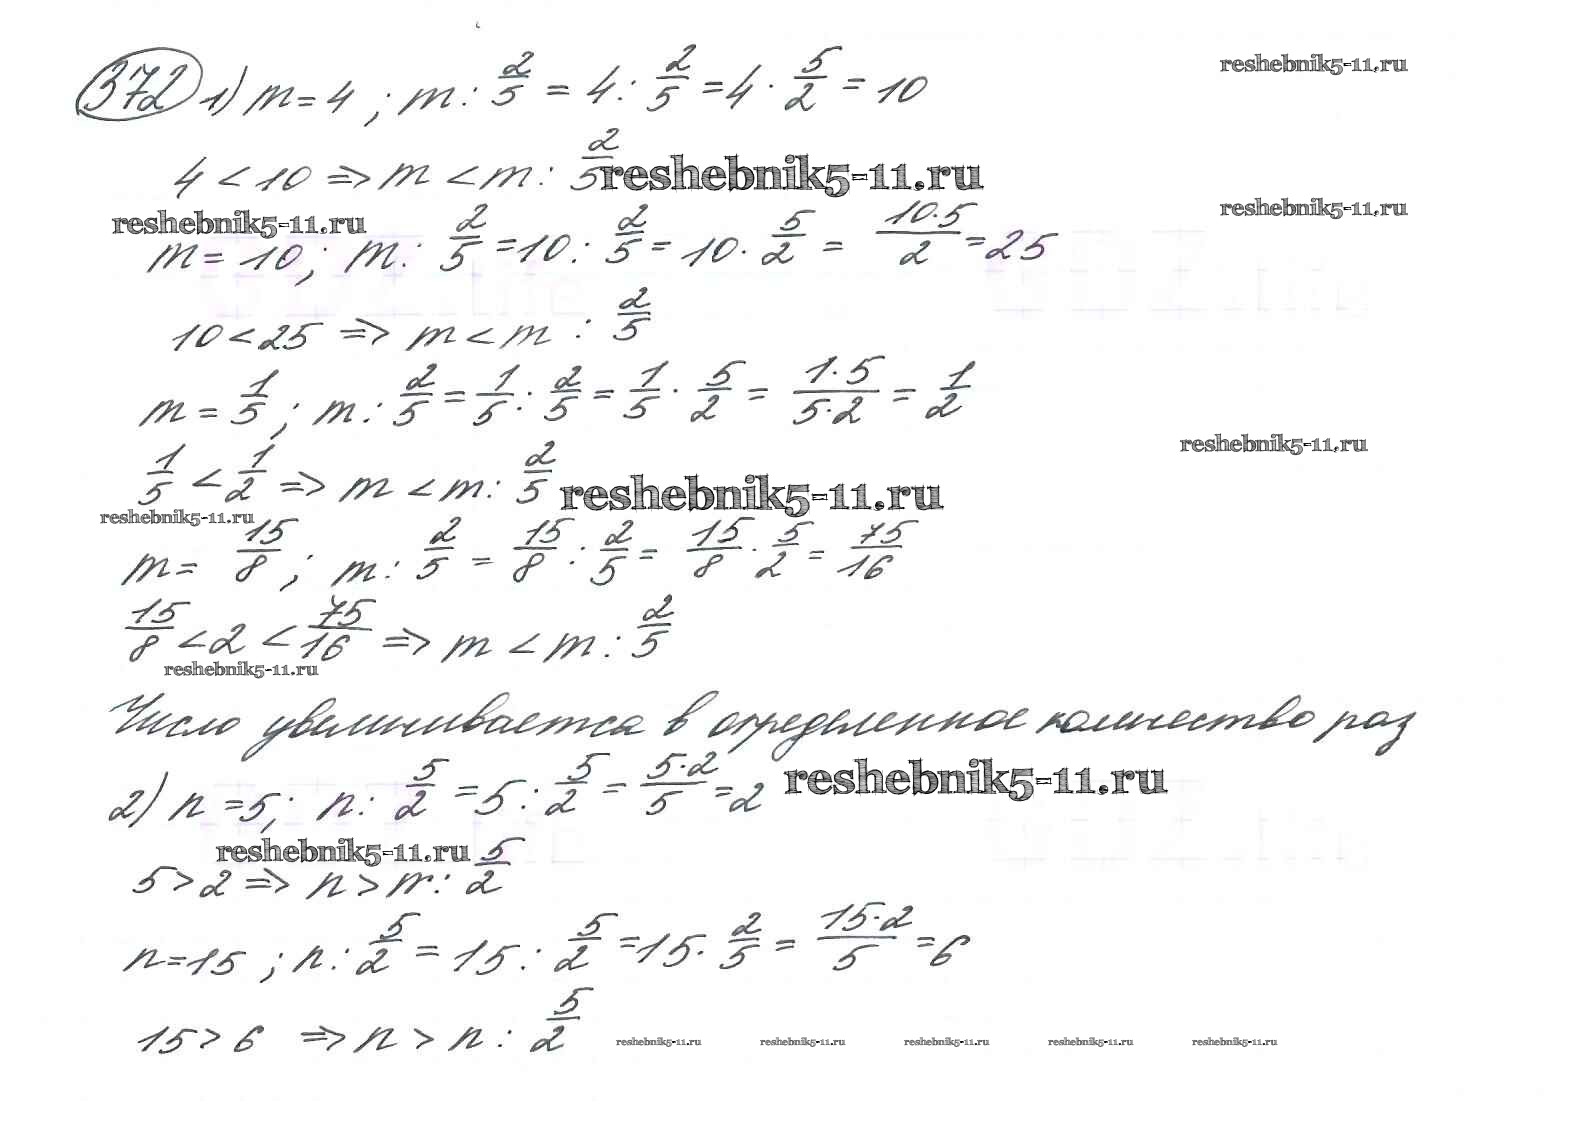 reshebnik5-11.ru
372 1) m = 4 ; m : 2/5 = 4 : 2/5 = 4 · 5/2 = 10
4 < 10 => m < m : 2/5
reshebnik5-11.ru
reshebnik5-11.ru
reshebnik5-11.ru
m = 10 ; m : 2/5 = 10 : 2/5 = 10 · 5/2 = 10·5/2 = 25
10 < 25 => m < m : 2/5
m = 1/5 ; m : 2/5 = 1/5 : 2/5 = 1/5 · 5/2 = 1·5/5·2 = 1/2
reshebnik5-11.ru
1/5 < 1/2 => m < m : 2/5
reshebnik5-11.ru
reshebnik5-11.ru
m = 15/8 ; m : 2/5 = 15/8 : 2/5 = 15/8 · 5/2 = 75/16
15/8 < 2 < 75/16 => m < m : 2/5
reshebnik5-11.ru
Число увеличивается в определенное количество раз
2) n = 5 ; n : 5/2 = 5 : 5/2 = 5·2/5 = 2
reshebnik5-11.ru
reshebnik5-11.ru
5 > 2 => n > n : 5/2
n = 15 ; n : 5/2 = 15 : 5/2 = 15 · 2/5 = 15·2/5 = 6
15 > 6 => n > n : 5/2
reshebnik5-11.ru reshebnik5-11.ru reshebnik5-11.ru reshebnik5-11.ru reshebnik5-11.ru